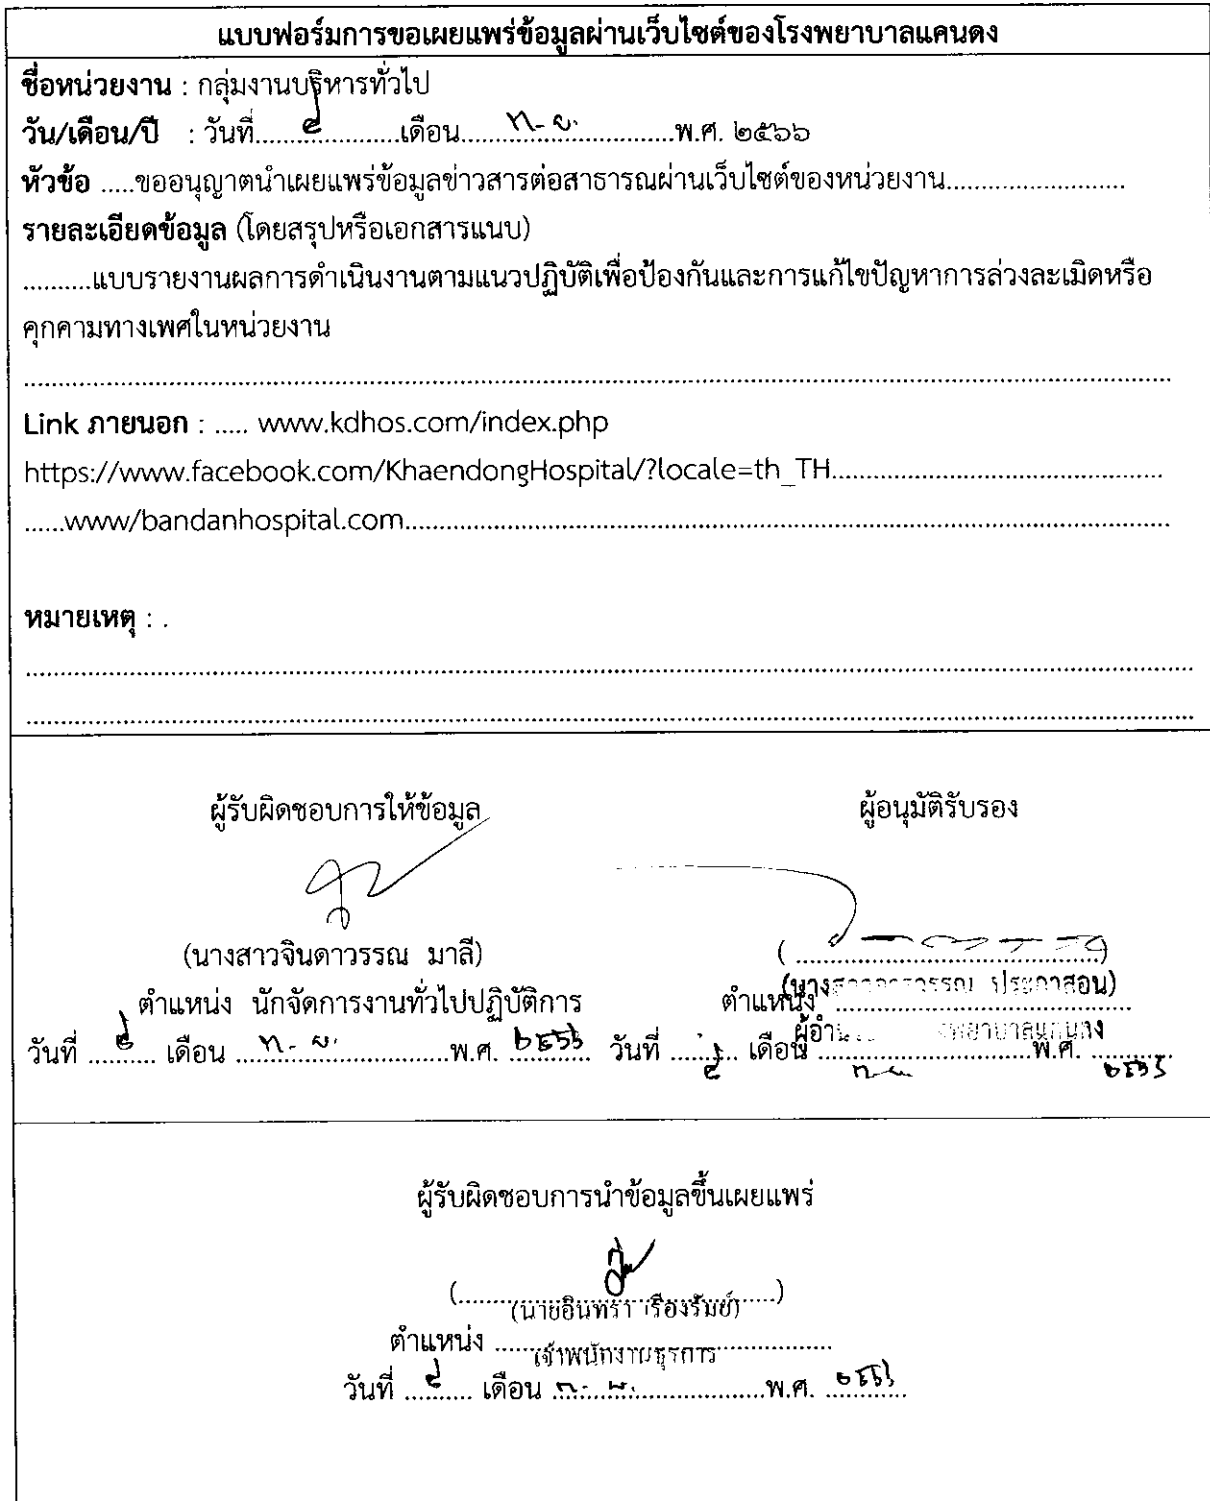 แบบฟอร์มการขอเผยแพร่ข้อมูลผ่านเว็บไซต์ของโรงพยาบาลแคนดง
ชื่อหน่วยงาน : กลุ่มงานบริหารทั่วไป
วัน/เดือน/ปี : วันที่....................เดือน.....ก.ย......พ.ศ. ๒๕๖๖
หัวข้อ .....ขออนุญาตนำเผยแพร่ข้อมูลข่าวสารต่อสาธารณผ่านเว็บไซต์ของหน่วยงาน..........................
รายละเอียดข้อมูล (โดยสรุปหรือเอกสารแนบ)
..........แบบรายงานผลการดำเนินงานตามแนวปฏิบัติเพื่อป้องกันและการแก้ไขปัญหาการล่วงละเมิดหรือ
คุกคามทางเพศในหน่วยงาน
Link ภายนอก : ..... www.kdhos.com/index.php
https://www.facebook.com/KhaendongHospital/?locale=th_TH
......www/bandanhospital.com
หมายเหตุ : .
ผู้รับผิดชอบการให้ข้อมูล ผู้อนุมัติรับรอง
(นางสาวจินดาวรรณ มาลี)
(นางสาว ประกาสอน)
ตำแหน่ง นักจัดการงานทั่วไปปฏิบัติการ ตำแหน่ง
วันที่ .......... เดือน ...ก.ย....พ.ศ. ๒๕๖๖ วันที่ .......... เดือน ...ก.ย....พ.ศ. ๒๕๖๖
ผู้รับผิดชอบการนำข้อมูลขึ้นเผยแพร่
(นายอินทรา เรืองรัมย์)
ตำแหน่ง เจ้าพนักงานธุรการ
วันที่ .......... เดือน ...ก.ย....พ.ศ. ๒๕๖๖